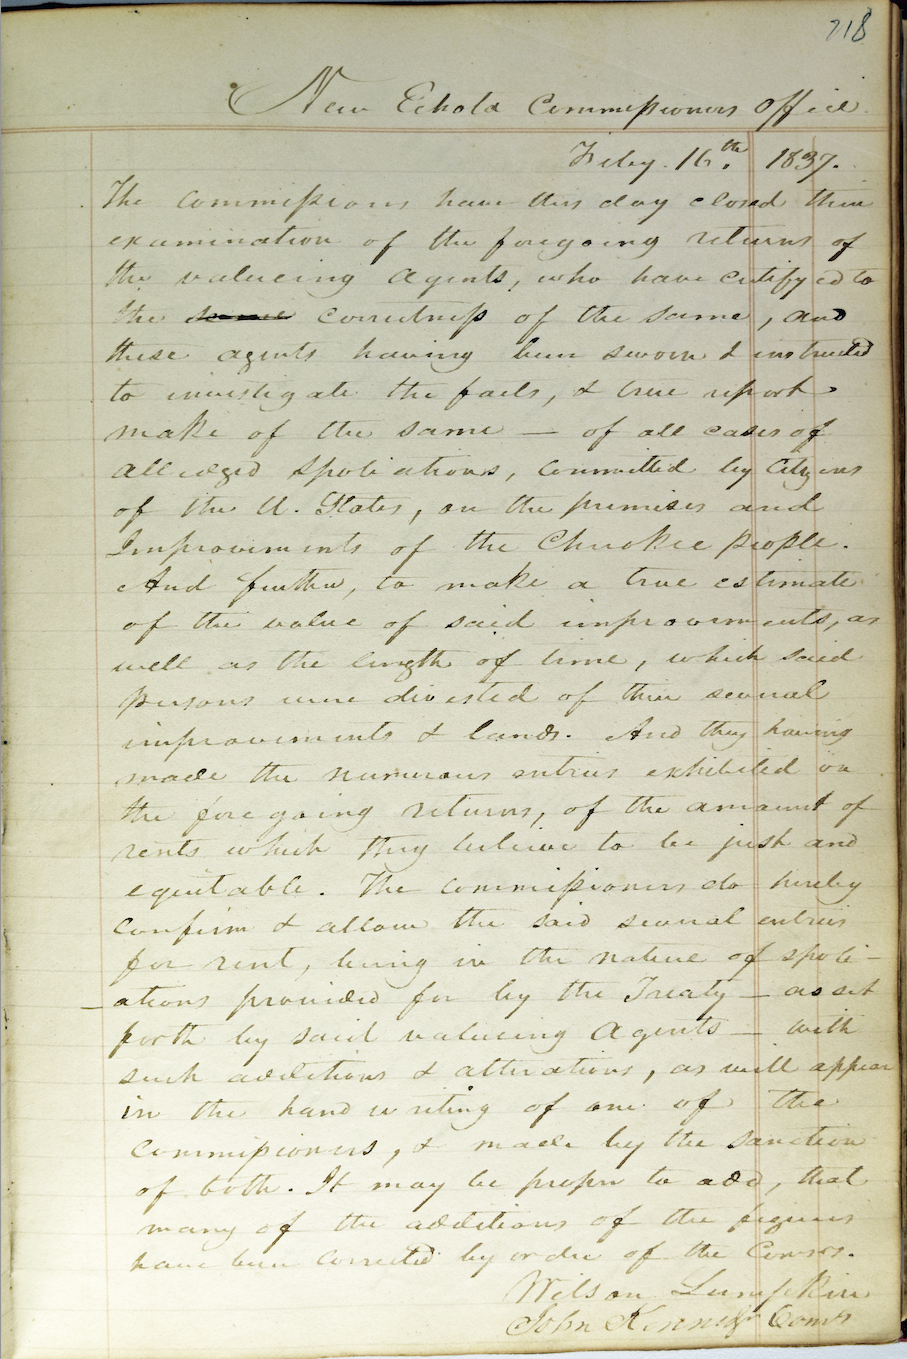 218
New Echota Commissioners Office.
Feby. 16th. 1837.
The Commissioners have this day closed their
examination of the foregoing returns of
the valueing agents, who have certifyed to
the same correctness of the same, and
these agents having been sworn & instructed
to investigate the facts, & true report
make of the same — of all cases of
alledged spoliations, committed by Citizens
of the U. States, on the premises and
Improvements of the Cherokee people.
And further, to make a true estimate
of the value of said improvements, as
well as the length of time, which said
persons were divested of their several
improvements & lands. And they having
made the numerous entries exhibited in
the foregoing returns, of the amount of
rents which they believe to be just and
equitable. The commissioners do hereby
confirm & allow the said several entries
for rent, being in the nature of spoli-
ations provided for by the Treaty — as set
forth by said valueing Agents — with
such additions & alterations, as will appear
in the hand writing of one of the
commissioners, & made by the sanction
of both. It may be proper to add, that
many of the additions of the figures
have been corrected by order of the Comrs.
Wilson Lumpkin
John Kennedy Comrs